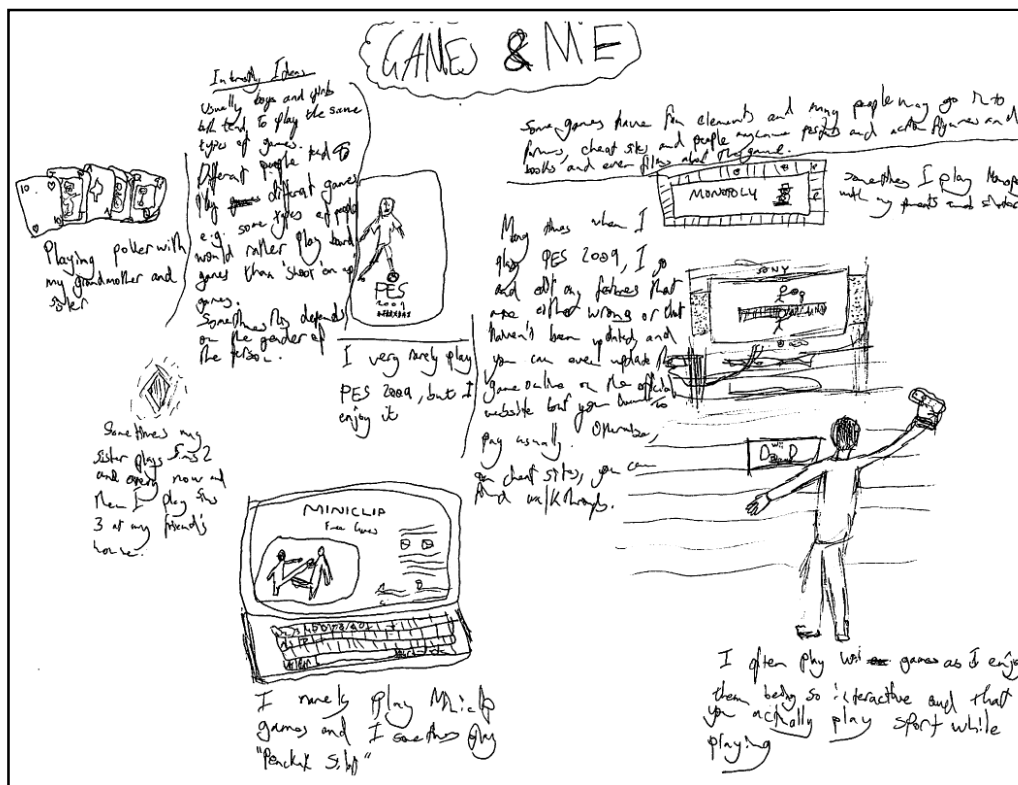 GAMES & ME
Interesting Ideas
Usually boys and girls
both tend to play the same
types of games.
Different people tend to
play different games
e.g. some types of people
would rather play board
games than 'shoot' em up
games.
Sometimes this depends
on the gender of
the person.
Playing poker with
my grandmother and
sister
PES
2009
I very rarely play
PES 2009, but I
enjoy it
Sometimes my
sister plays Sims 2
and every now and
then I play Sims
3 at my friend's
house.
Some games have fun elements and many people may go in to
forums, cheat sites and people may and action figures and
books, and even films about the game.
MONOPOLY
sometimes I play Monopo
with my parents and sister
Many times when I
play PES 2009, I go
and edit any features that
are either wrong or that
haven't been updated and
you can even update the
game online on the official
website but you have to
pay usually. Otherwise,
on cheat sites, you can
find walkthroughs.
SONY
Wii
MINICLIP
Free Games
I rarely play Miniclip
games and I sometimes play
I often play Wii games as I enjoy
them being so interactive and that
you actually play sport while
playing